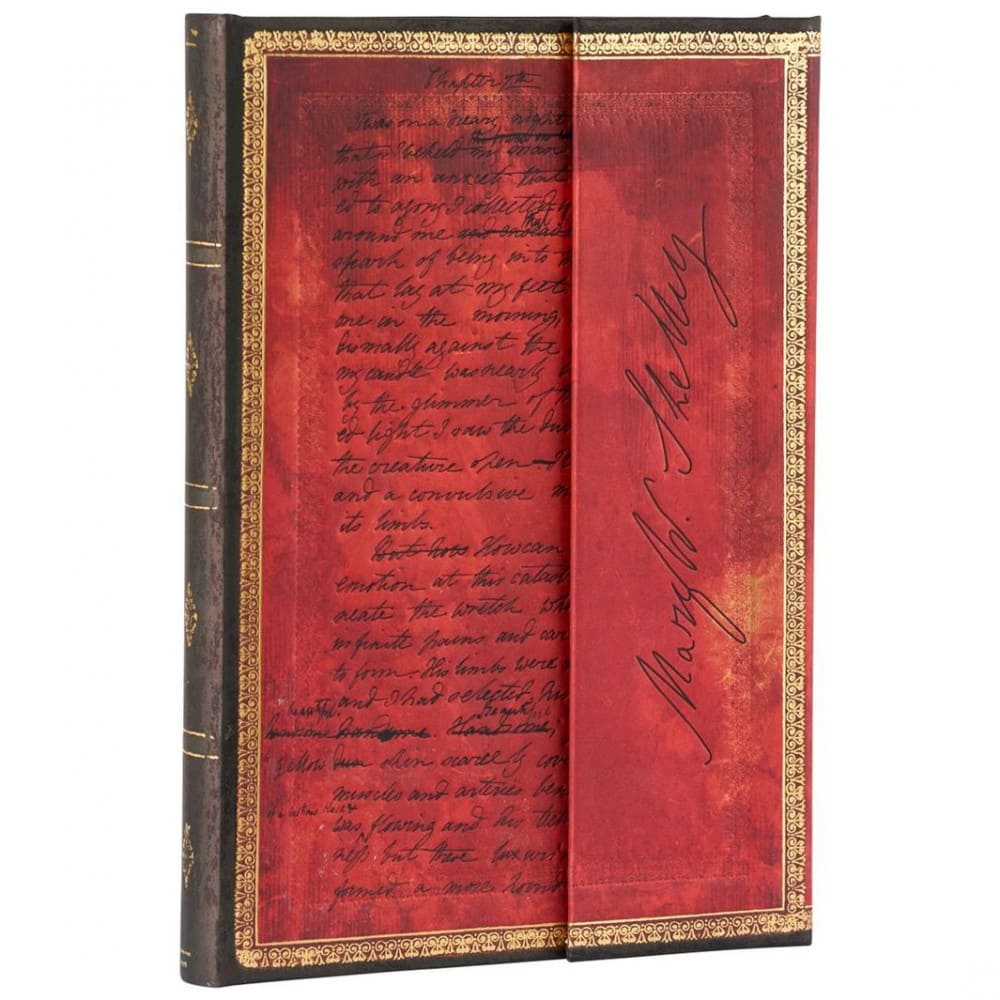 Chapter 7th
It was on a dreary night
that I beheld my man
with an anxiety that
ed to agony I collected
around me and endeav
spark of being into
that lay at my feet
one in the morning,
dismally against the
my candle was nearly
by the glimmer of
ed light I saw the du
the creature open
and a convulsive m
its limbs.
But how How can
emotion at this catas
neate the wretch wh
nfinite pains and car
to form. His limbs were
and I had selected his
beautiful
handsome handsome Handsome,
yellow dun skin scarcely cov
muscles and arteries ben
was flowing and his teeth
ness but these luxuri
formed a more horrid
Mary W. Shelley